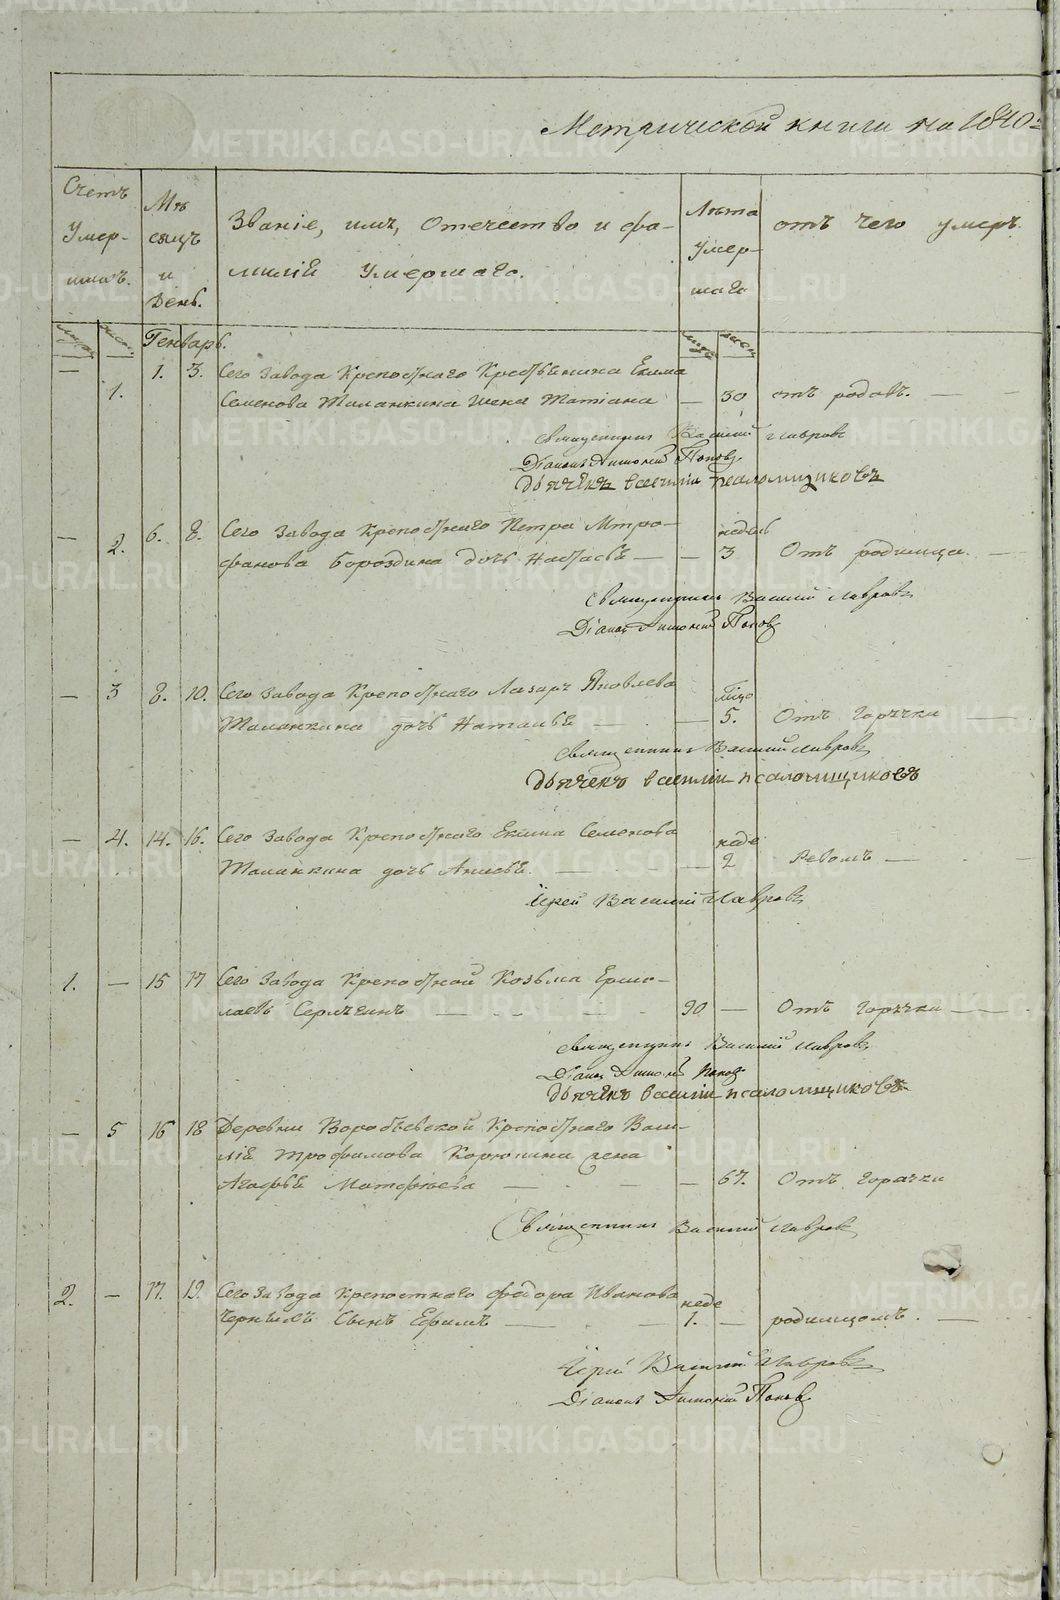 Метрической книги на 1840=
Счетъ Умер- шихъ.
Мѣ сяцъ и День.
Званіе, имя, Отечество и фа- милій Умершаго.
Лѣта Умер- шаго
отъ чего умеръ.
Генварь.
— 1. 1. 3. Сего Завода Крепостнаго Крестьянина Екима
Семенова Таланкина жена Татіана — 30 отъ родовъ. —
Священникъ Василій Лавровъ
Діаконъ Антоній Поповъ
дьячекъ василіи псаломщиковъ
— 2. 6. 8. Сего Завода Крепостнаго Петра Митро-
фанова Бороздина дочь Настасья — — недель 3 Отъ родимца. —
Священникъ Василій Лавровъ
Діаконъ Антоній Поповъ
— 3 8. 10. Сего Завода Крепостнаго Лазаря Яковлева
Таланкина дочь Наталья — — 5. Отъ Горячки —
Священникъ Василий Лавровъ
дьячекъ василіи псаломщиковъ
— 4. 14. 16. Сего Завода Крепостнаго Екима Семенова
Таланкина дочь Анисья. — — неде 2 Ревомъ —
Іерей Василій Лавровъ
1. — 15 17 Сего Завода Крепостной Козьма Ермо-
лаевъ — 90 — Отъ Горячки —
Священникъ Василій Лавровъ
Діаконъ Антоній Поповъ
дьячекъ василіи псаломщиковъ
— 5 16 18 Деревни Воробьевской Крепостнаго Васи-
лія Трофимова Корюкина жена
Агафья Матфеева — — 67. Отъ горячки
Священникъ Василій Лавровъ
2. — 17. 19. Сего Завода Крепостнаго Федора Иванова
Сынъ Ефимъ — — неде 1. — родимцомъ. —
Іерей Василій Лавровъ
Діаконъ Антоній Поповъ
METRIKI.GASO-URAL.RU